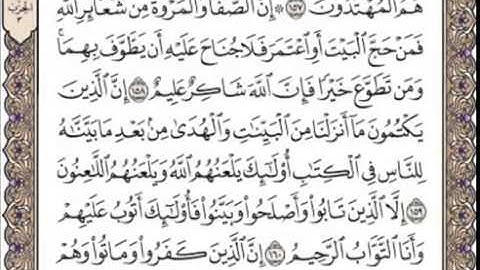 هُمُ الْمُهْتَدُونَ ١٥٧ ۞ إِنَّ الصَّفَا وَالْمَرْوَةَ مِن شَعَائِرِ اللَّهِ
فَمَنْ حَجَّ الْبَيْتَ أَوِ اعْتَمَرَ فَلَا جُنَاحَ عَلَيْهِ أَن يَطَّوَّفَ بِهِمَا
وَمَن تَطَوَّعَ خَيْرًا فَإِنَّ اللَّهَ شَاكِرٌ عَلِيمٌ ١٥٨ إِنَّ الَّذِينَ
يَكْتُمُونَ مَا أَنزَلْنَا مِنَ الْبَيِّنَاتِ وَالْهُدَىٰ مِن بَعْدِ مَا بَيَّنَّاهُ
لِلنَّاسِ فِي الْكِتَابِ أُولَٰئِكَ يَلْعَنُهُمُ اللَّهُ وَيَلْعَنُهُمُ اللَّاعِنُونَ
١٥٩ إِلَّا الَّذِينَ تَابُوا وَأَصْلَحُوا وَبَيَّنُوا فَأُولَٰئِكَ أَتُوبُ عَلَيْهِمْ
وَأَنَا التَّوَّابُ الرَّحِيمُ ١٦٠ إِنَّ الَّذِينَ كَفَرُوا وَمَاتُوا وَهُمْ
الحزب